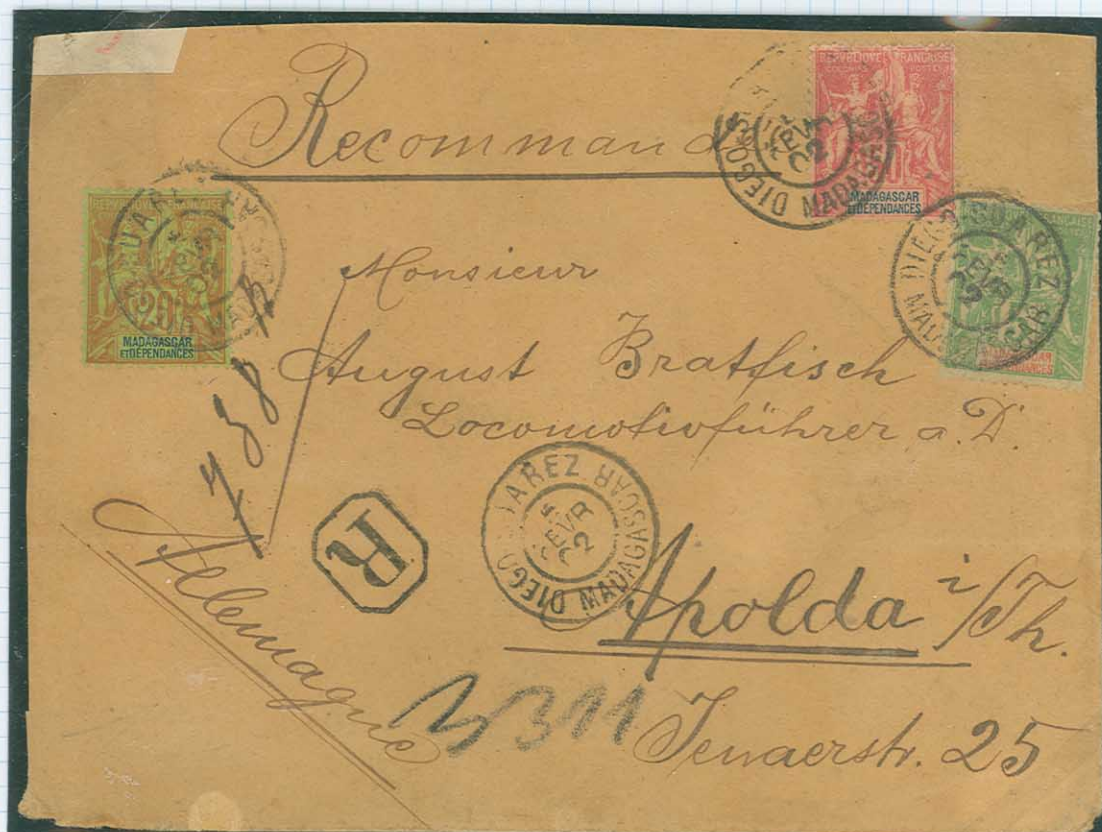 Recommandé
RÉPUBLIQUE FRANÇAISE
10
MADAGASCAR
ET DÉPENDANCES
DIEGO-SUAREZ MADAGASCAR
5
FEVR
02
20
MADAGASCAR
ET DÉPENDANCES
DIEGO-SUAREZ MADAGASCAR
5
FEVR
02
MADAGASCAR
ET DÉPENDANCES
Monsieur
August Bratfisch
Locomotivführer a. D.
DIEGO-SUAREZ MADAGASCAR
5
FEVR
02
R
Apolda i/Th.
Allemagne
311
Jenaerstr. 25